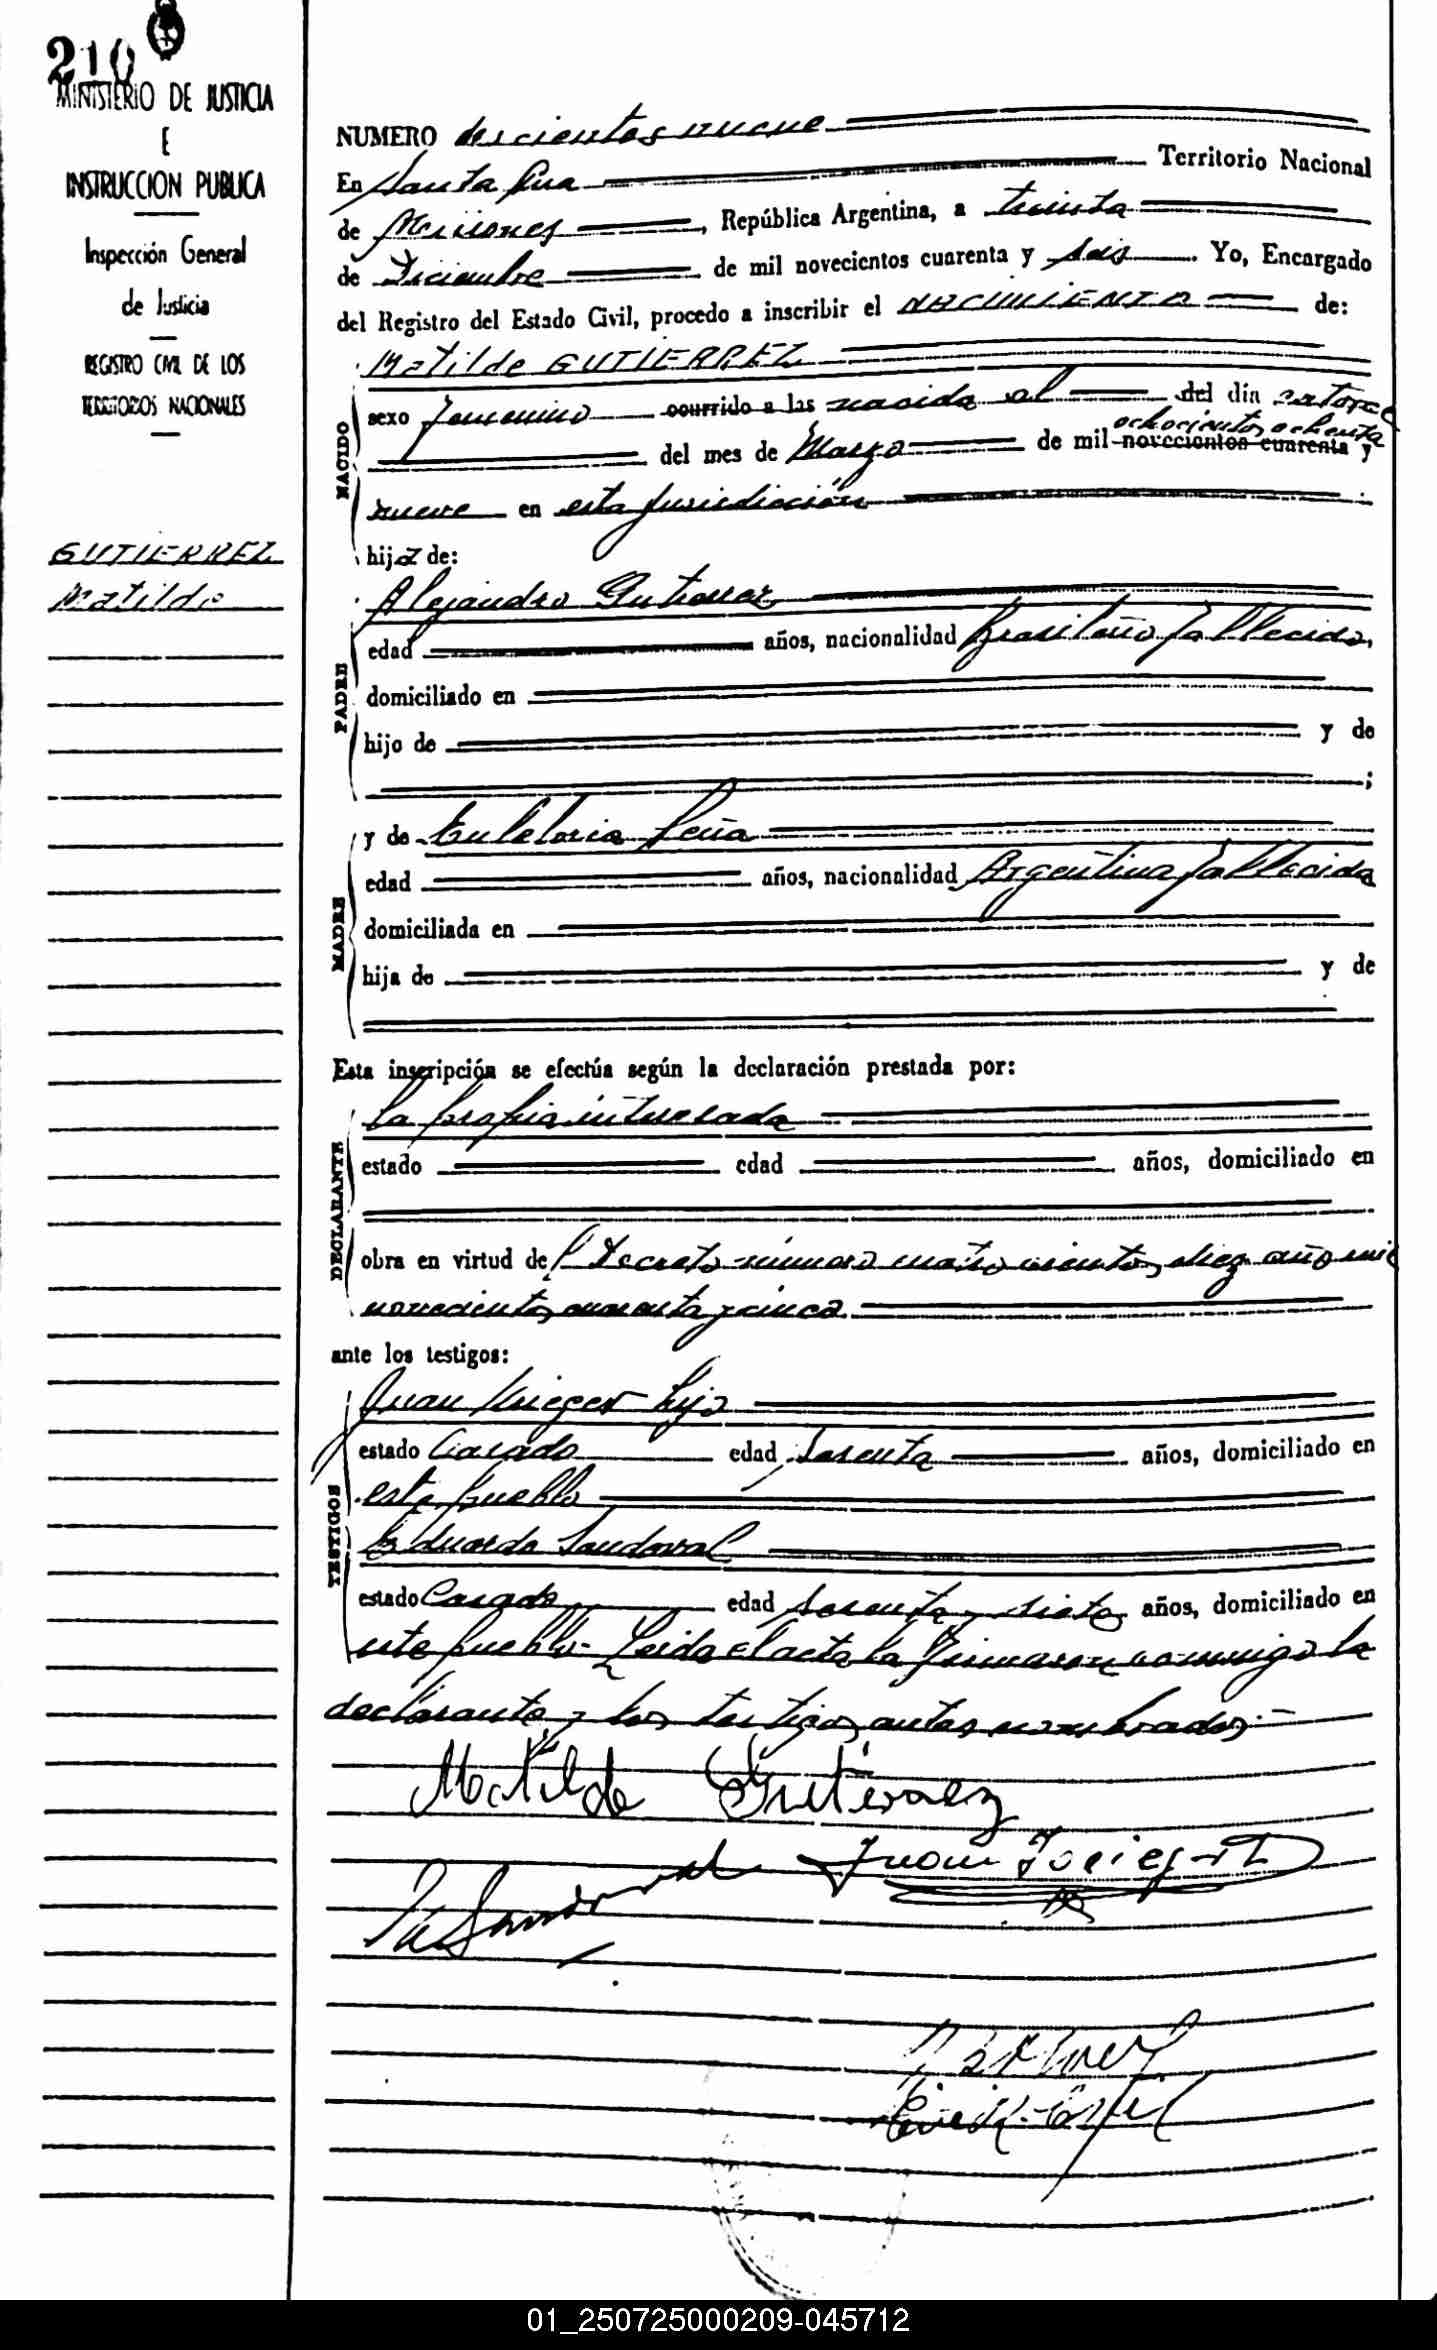 210
MINISTERIO DE JUSTICIA
E
INSTRUCCION PUBLICA
Inspección General
de Justicia
REGISTRO CIVIL DE LOS
TERRITORIOS NACIONALES
GUTIERREZ
Matilde
NUMERO doscientos nueve
En Santa Ana Territorio Nacional
de Misiones, República Argentina, a treinta
de Diciembre de mil novecientos cuarenta y seis. Yo, Encargado
del Registro del Estado Civil, procedo a inscribir el NACIMIENTO de:
NACIDO
Matilde GUTIERREZ
sexo femenino ocurrido a las nacida el del día catorce
ochocientos ochenta
del mes de Marzo de mil novecientos cuarenta y
nueve en esta jurisdicción
hija de:
PADRE
Alejandro Gutierrez
edad años, nacionalidad Brasileño fallecido,
domiciliado en
hijo de y de
;
MADRE
y de Eulelaria Peña
edad años, nacionalidad Argentina fallecida
domiciliada en
hija de y de
Esta inscripción se efectúa según la declaración prestada por:
DECLARANTE
la propia interesada
estado edad años, domiciliado en
obra en virtud del Decreto número cuatrocientos diez año mil
novecientos cuarenta y cinco
ante los testigos:
TESTIGOS
Juan Krieger hijo
estado Casado edad sesenta años, domiciliado en
este pueblo
Eduardo Sandoval
estado Casado edad sesenta y siete años, domiciliado en
este pueblo - Leida el acta la firmaron conmigo la
declarante y los testigos antes nombrados.-
Matilde Gutierrez
Sandoval Juan
01_250725000209-045712